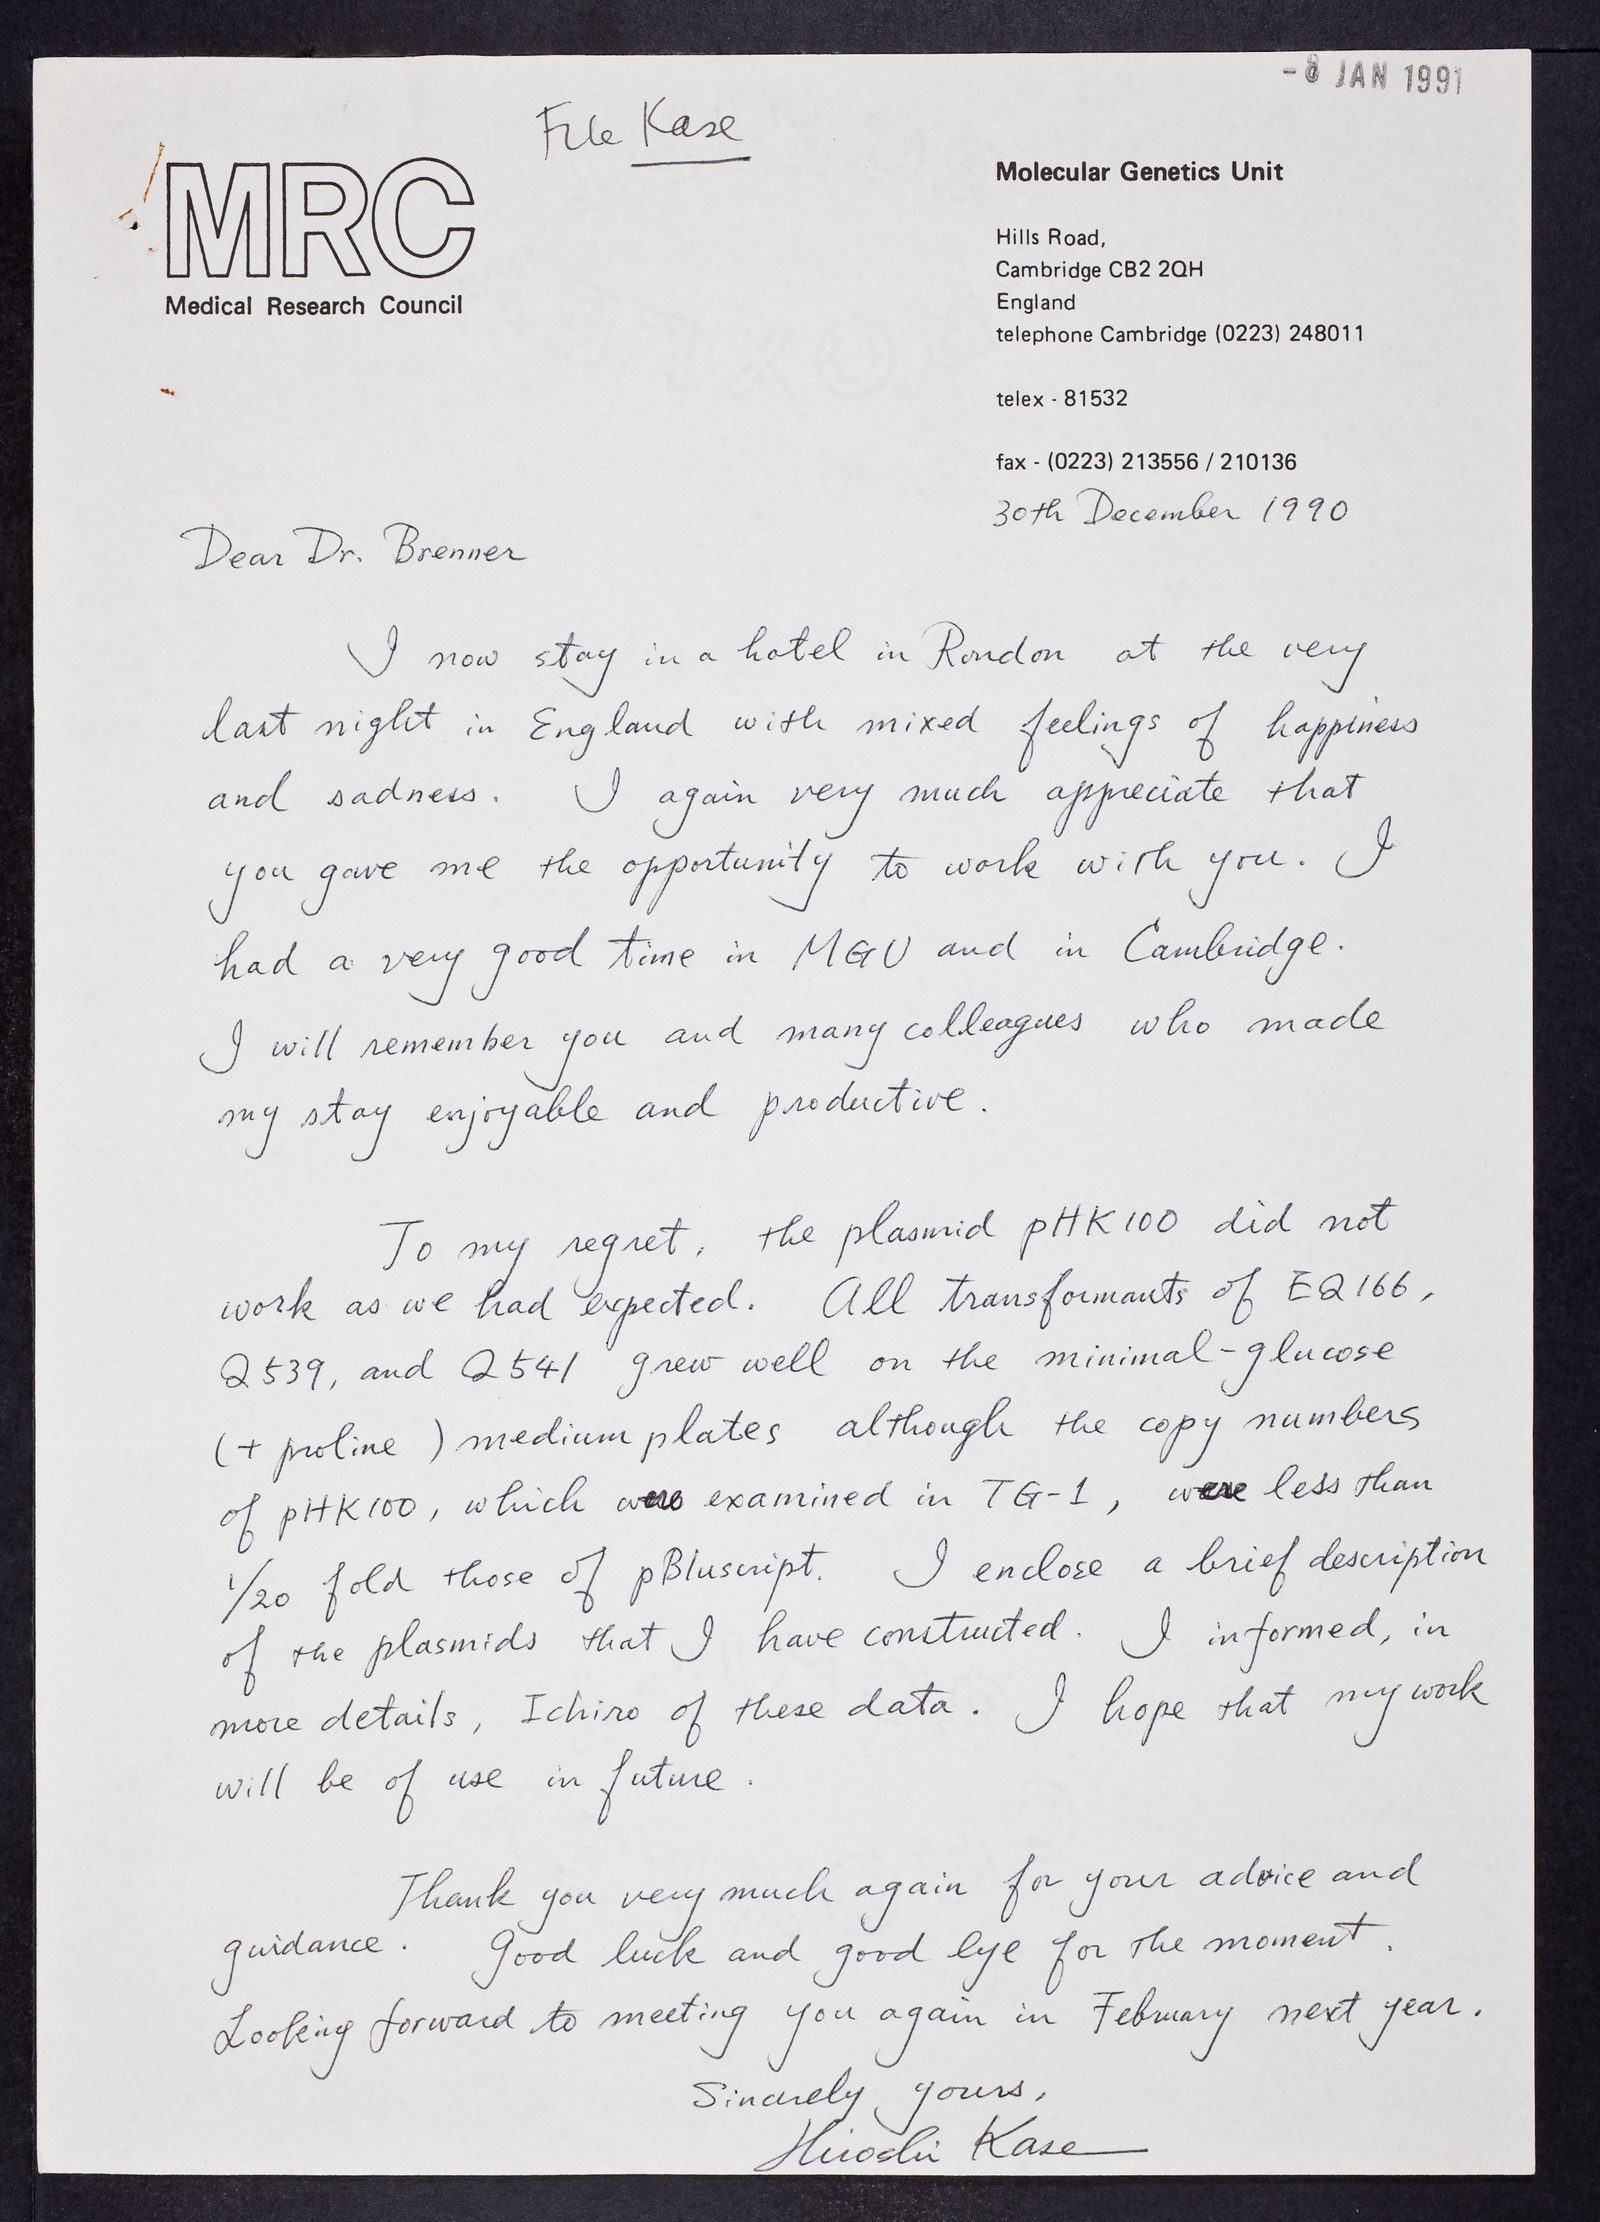 -8 JAN 1991
File Kase
MRC
Medical Research Council
Molecular Genetics Unit
Hills Road,
Cambridge CB2 2QH
England
telephone Cambridge (0223) 248011
telex - 81532
fax - (0223) 213556 / 210136
30th December 1990
Dear Dr. Brenner
I now stay in a hotel in Rondon at the very
last night in England with mixed feelings of happiness
and sadness. I again very much appreciate that
you gave me the opportunity to work with you. I
had a very good time in MGU and in Cambridge.
I will remember you and many colleagues who made
my stay enjoyable and productive.
To my regret, the plasmid pHK100 did not
work as we had expected. All transformants of EQ166,
Q539, and Q541 grew well on the minimal-glucose
(+ proline) medium plates although the copy numbers
of pHK100, which were examined in TG-1, were less than
1/20 fold those of pBluscript. I enclose a brief description
of the plasmids that I have constructed. I informed, in
more details, Ichiro of these data. I hope that my work
will be of use in future.
Thank you very much again for your advice and
guidance. Good luck and good bye for the moment.
Looking forward to meeting you again in February next year.
Sincerely yours,
Hiroshi Kase